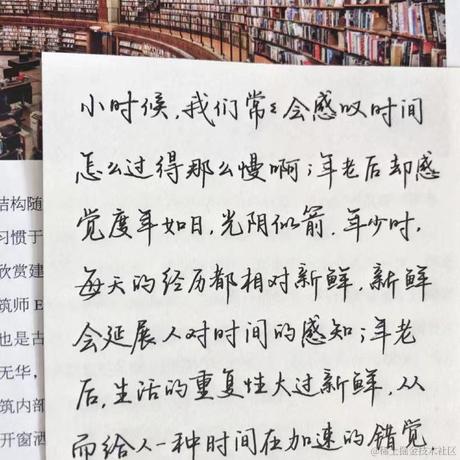 小时候,我们常々会感叹时间
怎么过得那么慢啊;年老后却感
觉度年如日,光阴似箭.年少时,
每天的经历都相对新鲜,新鲜
会延展人对时间的感知;年老
后,生活的重复性大过新鲜,从
而给人一种时间在加速的错觉
结构随
习惯于
欣赏建
筑师 E
也是古
无华,
筑内部
开窗洒
@稀土掘金技术社区